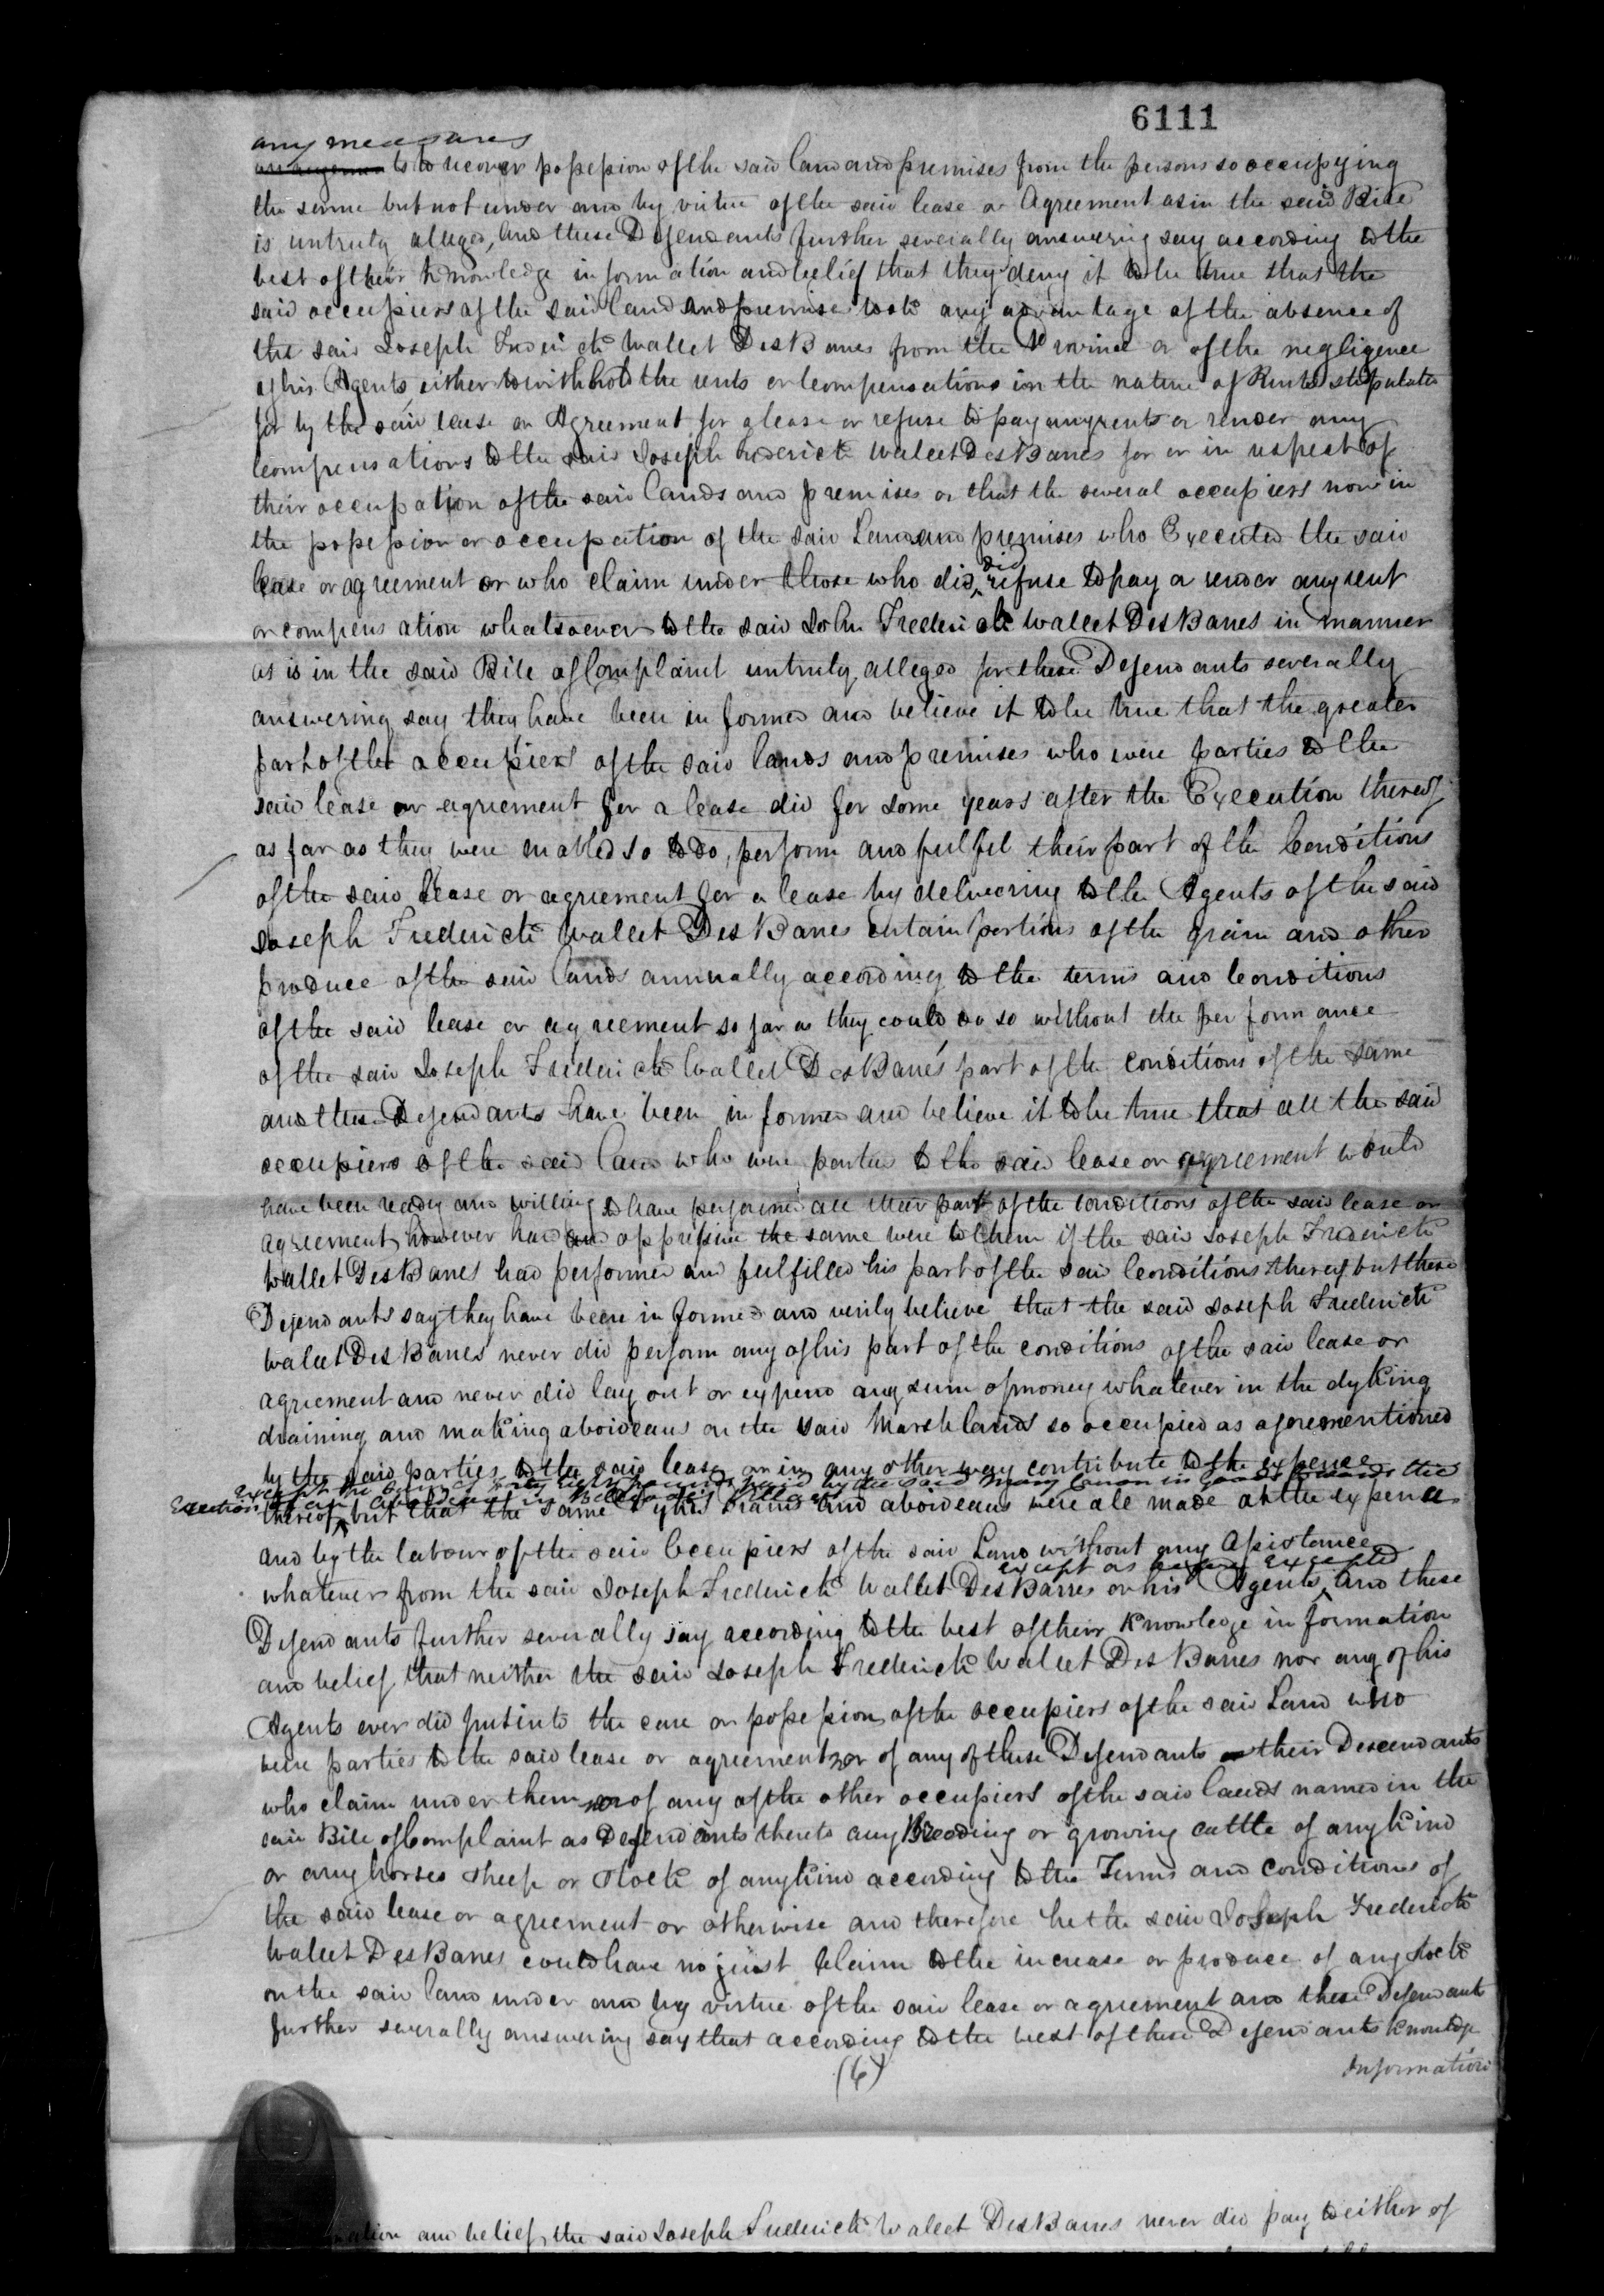 6111
any measures
ts to recover possession of the said land and premises from the persons so occupying
the same but not under and by virtue of the said lease or Agreement as in the said Bill
is untruly alleged, and these Defendants further severally answering say according to the
best of their knowledge information and belief that they deny it to be true that the
said occupiers of the said land and premises took any advantage of the absence of
the said Joseph Frederick Wallet DesBarres from the Province or of the negligence
of his Agents, either to withhold the rents or Compensations in the nature of Rents stipulated
for by the said lease or Agreement for a lease or refuse to pay any rents or render any
Compensations to the said Joseph Frederick Wallet DesBarres for or in respect of
their occupation of the said lands and premises or that the several occupiers now in
the possession or occupation of the said Lands and premises who Executed the said
lease or agreement or who claim under those who did, did refuse to pay or render any rent
or compensation whatsoever to the said John Frederick Wallet DesBarres in manner
as is in the said Bill of Complaint untruly alleged for these Defendants severally
answering say they have been informed and believe it to be true that the greater
part of the occupiers of the said lands and premises who were parties to the
said lease or agreement for a lease did for some years after the Execution thereof
as far as they were enabled so to do, perform and fulfil their part of the Conditions
of the said lease or agreement for a lease by delivering to the Agents of the said
Joseph Frederick Wallet DesBarres certain portions of the grain and other
produce of the said lands annually according to the terms and Conditions
of the said lease or agreement so far as they could do so without the performance
of the said Joseph Frederick Wallet DesBarres' part of the conditions of the same
and these Defendants have been informed and believe it to be true that all the said
occupiers of the said land who were parties to the said lease or agreement would
have been ready and willing to have performed all their part of the conditions of the said lease or
agreement, however hard and oppressive the same were to them if the said Joseph Frederick
Wallet DesBarres had performed and fulfilled his part of the said Conditions thereof but these
Defendants say they have been informed and verily believe that the said Joseph Frederick
Wallet DesBarres never did perform any of his part of the conditions of the said lease or
agreement and never did lay out or expend any sum of money whatever in the dyking
draining and making aboideaus on the said Marsh lands so occupied as aforementioned
by the said parties to the said lease or in any other way contribute to the expence
except the sum of forty eight pounds paid by the said Mary Cannon in goods towards the
Erection of an aboideau in
thereof but that the same Dykes Drains and aboideaus were all made at the expence
and by the labour of the said Occupiers of the said Land without any Assistance
except as before excepted
whatever from the said Joseph Frederick Wallet DesBarres or his Agents, and these
Defendants further severally say according to the best of their Knowledge information
and belief, that neither the said Joseph Frederick Wallet DesBarres nor any of his
Agents ever did put into the care or possession of the occupiers of the said Land who
were parties to the said lease or agreement nor of any of these Defendants or their Descendants
who claim under them nor of any of the other occupiers of the said lands named in the
said Bill of Complaint as Defendants thereto any Breeding or growing cattle of any kind
or any horses sheep or stock of any kind according to the Terms and conditions of
the said lease or agreement or otherwise and therefore he the said Joseph Frederick
Wallet DesBarres could have no just Claim to the increase or produce of any stock
on the said land under and by virtue of the said lease or agreement and these Defendants
further severally answering say that according to the best of these Defendants knowledge
(6)
Information
mation and belief, the said Joseph Frederick Wallet DesBarres never did pay to either of